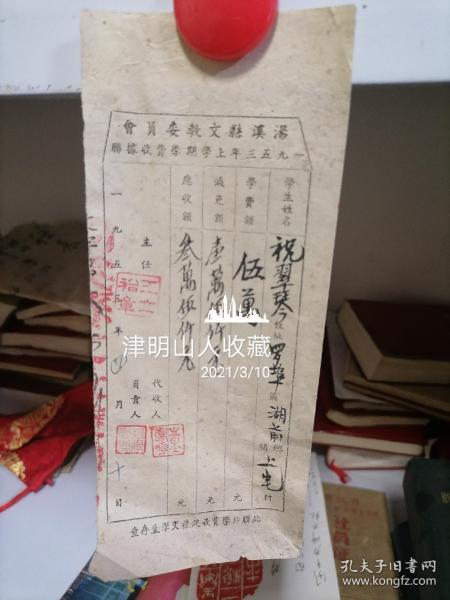 湯溪縣文敎委員會
一九五三年上學期學費收據聯
學生姓名 祝翠琴 羅埠區 湖前鄉 上宅村
學費額 伍萬 元
減免額 壹萬伍仟元 元
應收額 叁萬伍仟元 元
主任
代收人
負責人
一九五三年 月十日
此聯於學費收足後交學生存查
津明山人收藏
2021/3/10
孔夫子旧书网
www.kongfz.com
社員証